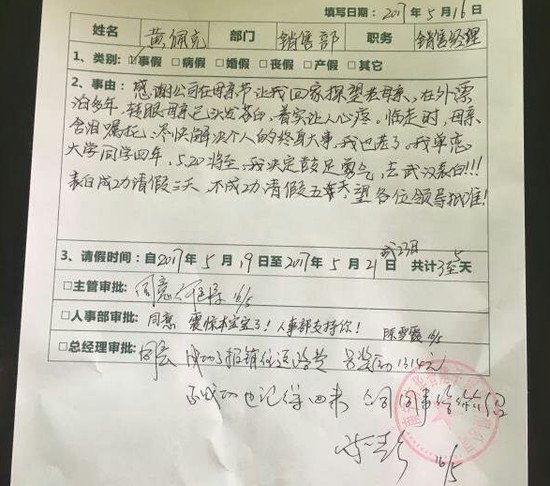 填写日期：2017年5月16日
姓名 黄佩充 部门 销售部 职务 销售经理
1、类别：☑事假 □病假 □婚假 □丧假 □产假 □其它
2、事由：感谢公司在母亲节让我回家探望老母亲，在外漂
泊多年，转眼母亲已头发苍白，着实让人心疼，临走时，母亲
含泪嘱托，尽快解决个人的终身大事，我也老了。我单恋
大学同学四年，5.20将至，我决定鼓足勇气，去武汉表白!!!
表白成功请假三天，不成功请假五天，望各位领导批准！
或23日
3、请假时间：自2017年5月19日至2017年5月21日 共计3至5天
□主管审批：同意 16/5
□人事部审批：同意 震惊本宝宝了！人事部支持你！ 16/5
□总经理审批：同意 成功了报销往返路费 另奖励1314元
不成功也记得回来 公司同事给你介绍
16/5